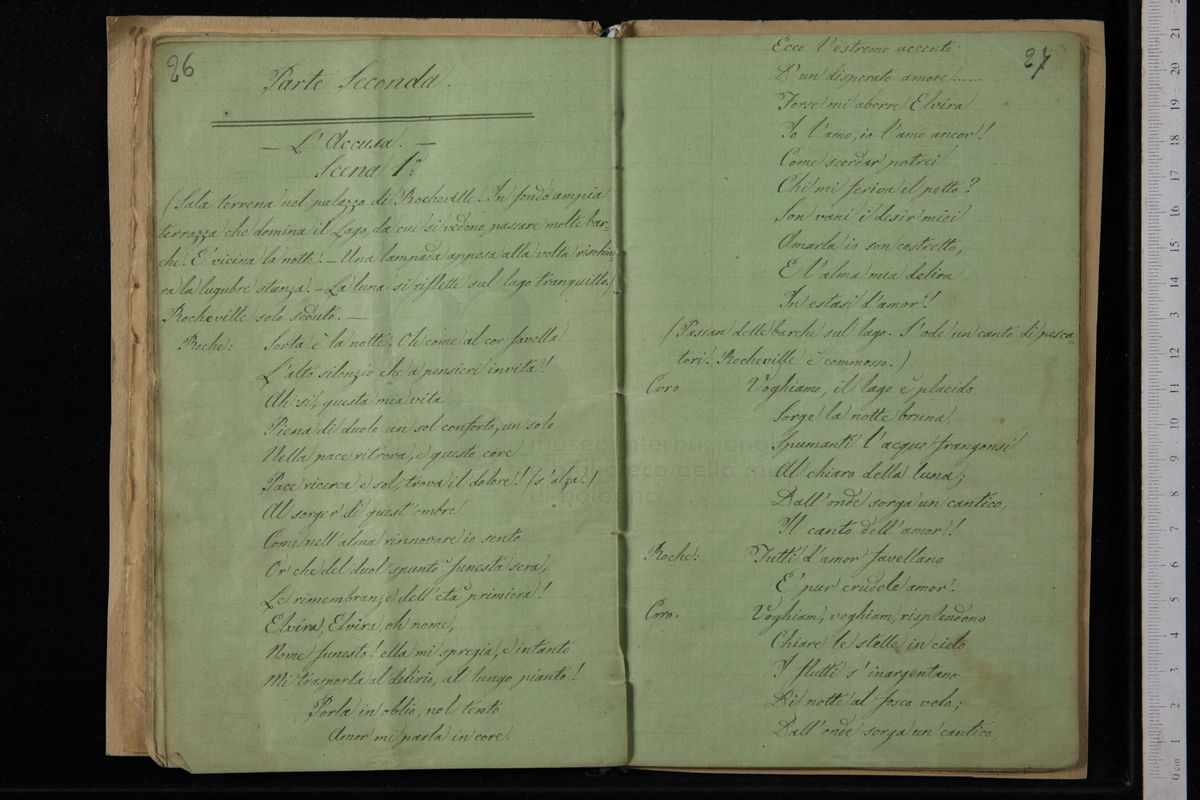 26
Parte Seconda.
— L'Accusa. —
Scena 1ª
(Sala terrena nel palazzo di Rocheville. In fondo ampia
terrazza che domina il Lago, da cui si vedono passare molte bar-
che. È vicina la notte. — Una lampada appesa alla volta rischia-
ra la lugubre stanza. — La luna si riflette sul lago tranquillo.)
Rocheville solo seduto. —
Roche: Sorta è la notte. Oh come al cor favella
L'alto silenzio che a pensieri invita!
Ah sì, questa mia vita
Piena di duolo un sol conforto, un solo
Nella pace ritrova, e questo core
Pace ricerca e sol, trova il dolore! (s'alza.)
Al sorger di quest'ombre
Come nell'alma rinnovare io sento
Or che del duol spunto funesta sera,
Le rimembranze dell'età primiera!
Elvira, Elvira, oh nome,
Nome funesto! ella mi spregia, e intanto
Mi trasporta al delirio, al lungo pianto!
Porla in oblio, nol tento
Amor mi parla in core.
27
Ecco l'estremo accento
D'un disperato amore.....
Forse mi aborre Elvira
Io l'amo, io l'amo ancor!!
Come scordar potrei
Chi mi feriva il petto?
Son vani i desir miei
Amarla io son costretto,
E l'alma mia delira
In estasi d'amor!!
(Passan delle barche sul lago. S'ode un canto di pesca-
tori. Rocheville è commosso.)
Coro Voghiamo, il lago è placido
Sorge la notte bruna
Spumanti l'acque frangonsi
Al chiaro della luna;
Dall'onde sorga un cantico,
Il canto dell'amor!
Roche: Tutti d'amor favellano
E pur crudele amor.
Coro. Voghiam, voghiam, risplendono
Chiare le stelle in cielo
I flutti s'inargentano
Di notte al fosco velo;
Dall'onde sorga un cantico,
museo internazionale
biblioteca della mu
di bologna